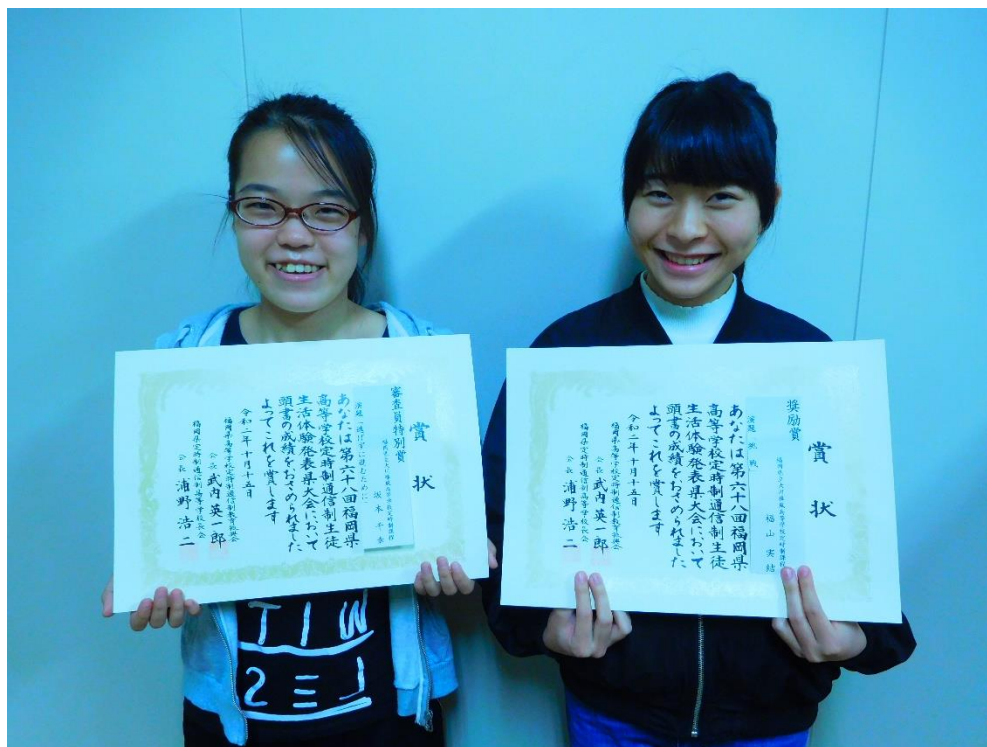 賞状
審査員特別賞
あなたは第六十八回福岡県
高等学校定時制通信制生徒
生活体験発表県大会において
頭書の成績をおさめられました
よってこれを賞します
令和二年十月十五日
福岡県高等学校定時制通信制教育振興会
会長 武内英一郎
福岡県定時制通信制高等学校長会
会長 浦野浩二
賞状
奨励賞
演題 挑戦
福山実結
あなたは第六十八回福岡県
高等学校定時制通信制生徒
生活体験発表県大会において
頭書の成績をおさめられました
よってこれを賞します
令和二年十月十五日
福岡県高等学校定時制通信制教育振興会
会長 武内英一郎
福岡県定時制通信制高等学校長会
会長 浦野浩二